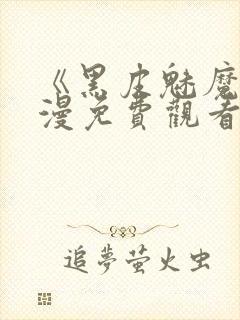 《黑皮魅魔
漫免費觀看
追夢萤火虫